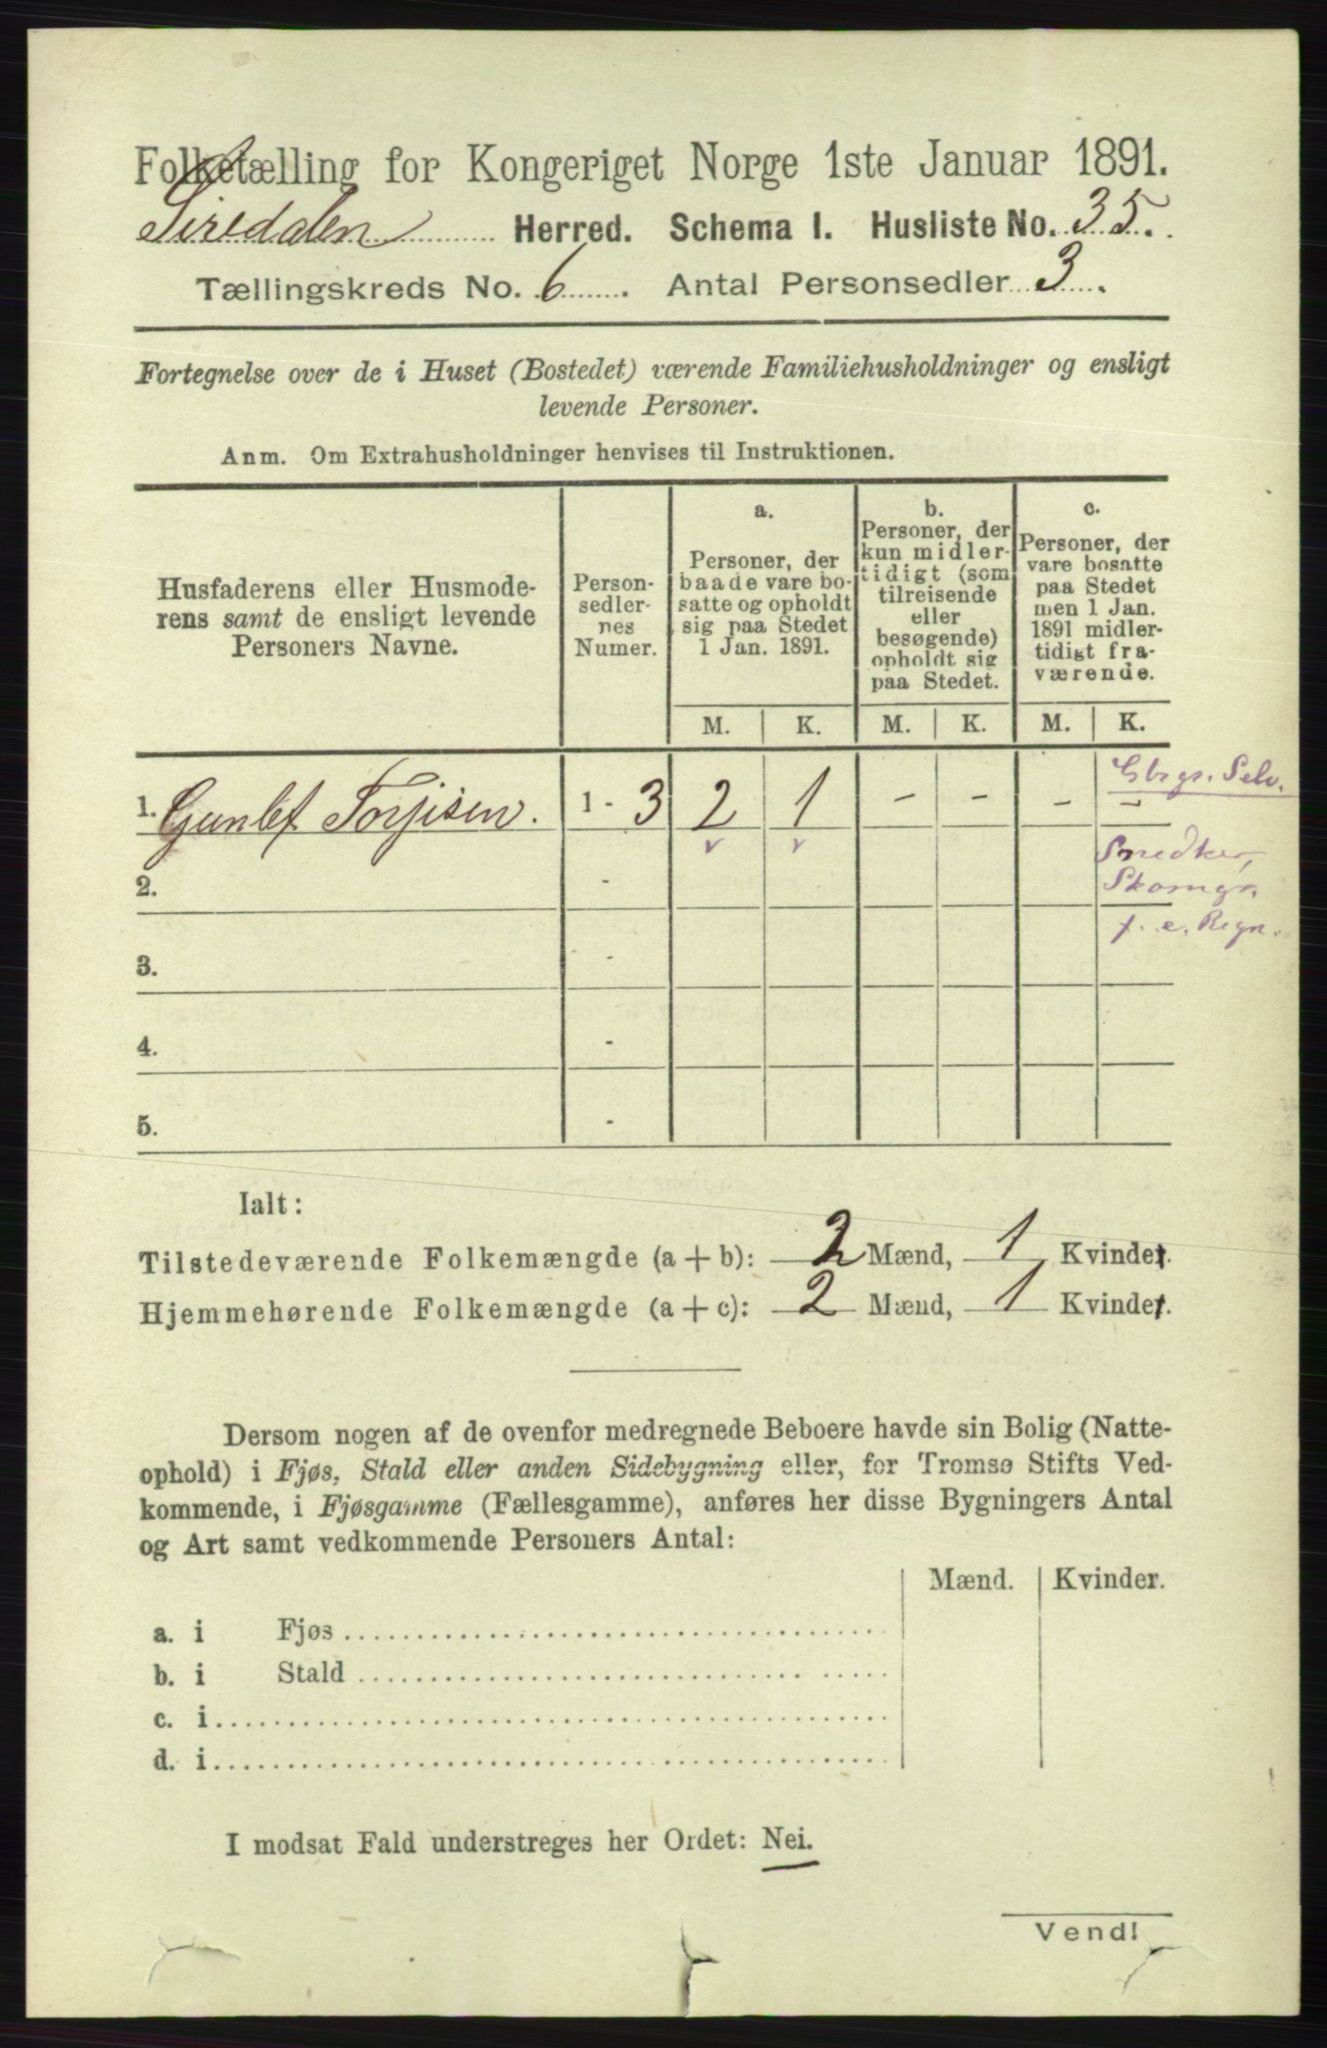 Folketælling for Kongeriget Norge 1ste Januar 1891.
Siredalen Herred. Schema I. Husliste No. 35.
Tællingskreds No. 6. Antal Personsedler 3.
Fortegnelse over de i Huset (Bostedet) værende Familiehusholdninger og ensligt
levende Personer.
Anm. Om Extrahusholdninger henvises til Instruktionen.
Husfaderens eller Husmode-
rens samt de ensligt levende
Personers Navne.
Person-
sedler-
nes
Numer.
a.
Personer, der
baade vare bo-
satte og opholdt
sig paa Stedet
1 Jan. 1891.
b.
Personer, der
kun midler-
tidigt (som
tilreisende
eller
besøgende)
opholdt sig
paa Stedet.
c.
Personer, der
vare bosatte
paa Stedet
men 1 Jan.
1891 midler-
tidigt fra-
værende.
M. K. M. K. M. K.
Gbrgs. Selv.
1. Gunlef Torjisen. 1 - 3 2 1 - - - -
v v
Snedker,
Skomgr.
2. -
f. e. Regn.
3. -
4. -
5. -
Ialt:
Tilstedeværende Folkemængde (a + b): 2 Mænd, 1 Kvinder.
Hjemmehørende Folkemængde (a + c): 2 Mænd, 1 Kvinder.
Dersom nogen af de ovenfor medregnede Beboere havde sin Bolig (Natte-
ophold) i Fjøs, Stald eller anden Sidebygning eller, for Tromsø Stifts Ved-
kommende, i Fjøsgamme (Fællesgamme), anføres her disse Bygningers Antal
og Art samt vedkommende Personers Antal:
Mænd. Kvinder.
a. i Fjøs
b. i Stald
c. i
d. i
I modsat Fald understreges her Ordet: Nei.
Vend!